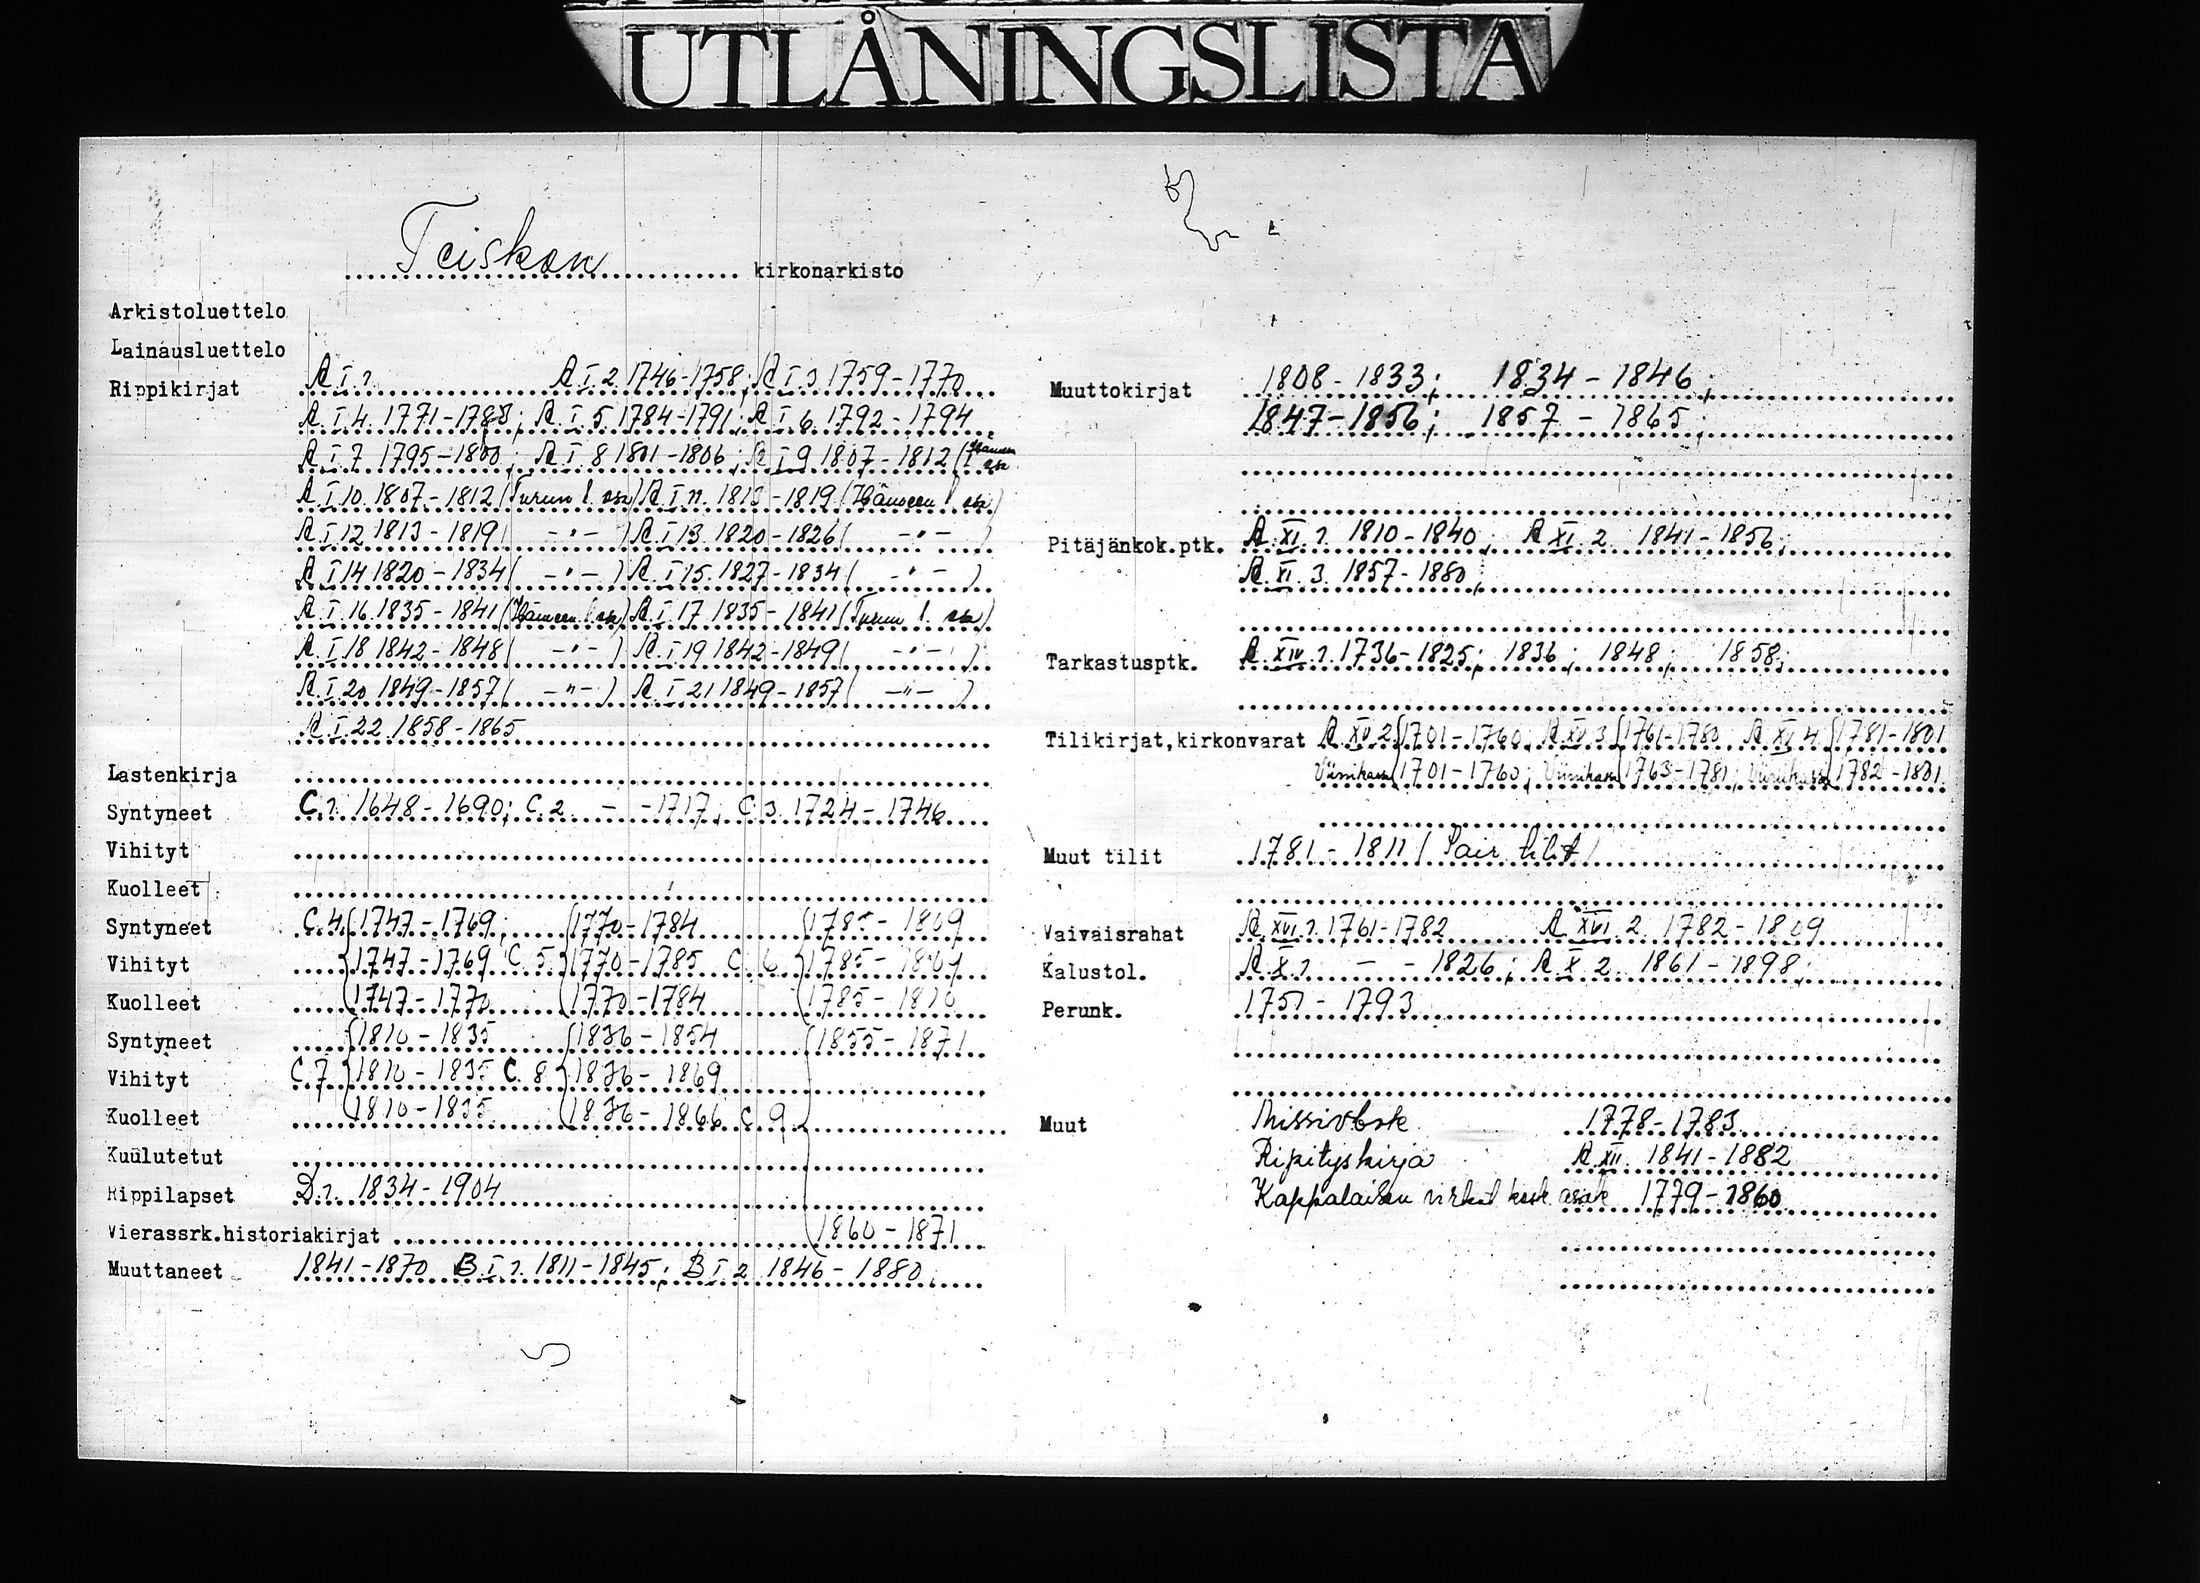 UTLÅNINGSLISTA
Teiskon kirkonarkisto
Arkistoluettelo
Lainausluettelo
Rippikirjat A I 1. A I 2 1746-1758; A I 3 1759-1770
A I 4 1771-1783; A I 5 1784-1791; A I 6 1792-1794
A I 7 1795-1800; A I 8 1801-1806; A I 9 1807-1812 (Hämeen l. osa
A I 10. 1807-1812 (Turun l. osa) A I 11. 1813-1819 (Hämeen l. osa)
A I 12 1813-1819 ( -"- ) A I 13 1820-1826 ( -"- )
A I 14 1820-1834 ( -"- ) A I 15. 1827-1834 ( -"- )
A I 16 1835-1841 (Hämeen l. osa) A I 17 1835-1841 (Turun l. osa)
A I 18 1842-1848 ( -"- ) A I 19 1842-1849 ( -"- )
A I 20 1849-1857 ( -"- ) A I 21 1849-1857 ( -"- )
A I 22 1858-1865
Lastenkirja
Syntyneet C.1. 1648-1690; C.2 - -1717; C 3 1724-1746
Vihityt
Kuolleet
Syntyneet C.4 1747-1769; 1770-1784 1785-1809
Vihityt 1747-1769 C.5. 1770-1785 C. 6 1785-1809
Kuolleet 1747-1770 1770-1784 1785-1810
Syntyneet 1810-1835 1836-1854 1855-1871
Vihityt C.7 1810-1835 C.8 1836-1869
Kuolleet 1810-1835 1836-1866 C 9
Kuulutetut
Rippilapset D.1. 1834-1904
Vierassrk.historiakirjat 1860-1871
Muuttaneet 1841-1870 B I 1. 1811-1845; B I 2 1846-1880
Muuttokirjat 1808-1833; 1834-1846;
1847-1856; 1857-1865;
Pitäjänkok.ptk. A XI 1. 1810-1840; A XI 2 1841-1856;
A XI 3. 1857-1880;
Tarkastusptk. A XIV 1. 1736-1825; 1836; 1848; 1858;
Tilikirjat,kirkonvarat A XV 2 1701-1760; A XV 3 1761-1780 A XV 4 1781-1801
Viinikassa 1701-1760; Viinikassa 1763-1781; Viinikassa 1782-1801
Muut tilit 1781-1811 (Sair. tilit)
Vaivaisrahat A XVI 1. 1761-1782 A XVI 2 1782-1809
Kalustol. A X 1 - - 1826; A X 2 1861-1898;
Perunk. 1751-1793
Muut 1778-1783
Ripityskirja A XII 1841-1882
Kappalaisen virkat. kosk. asiak. 1779-1860